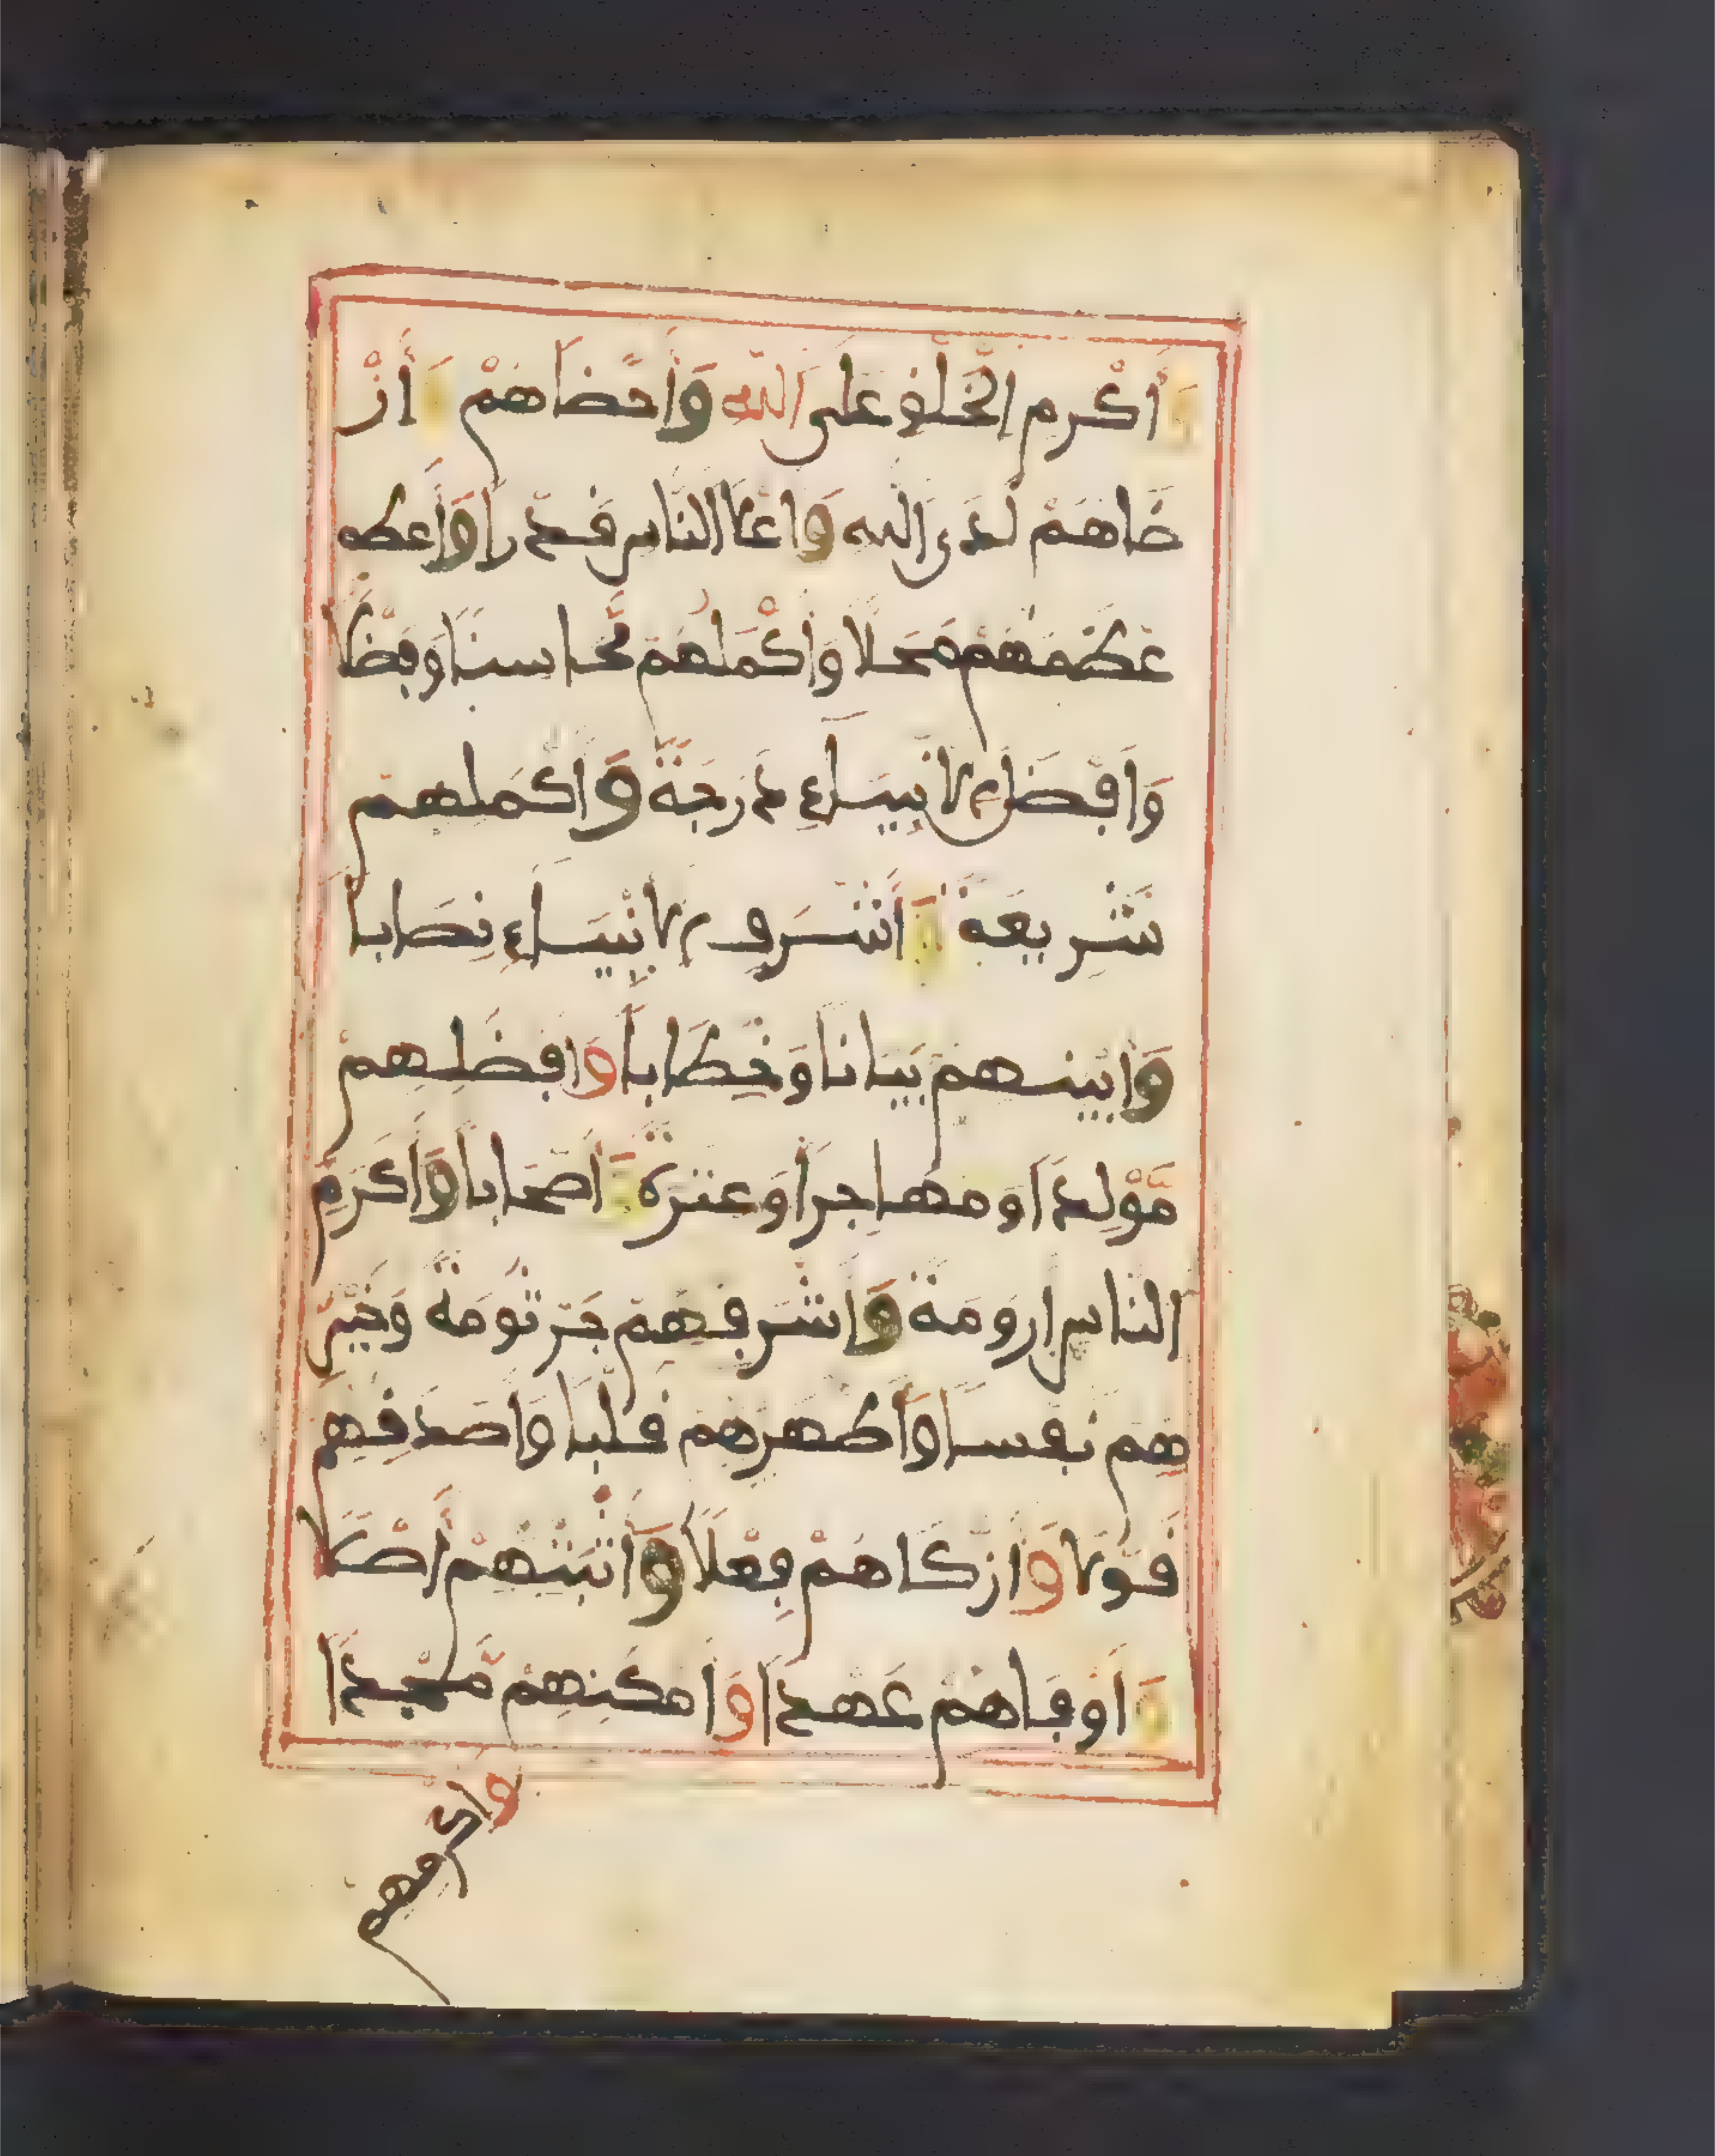 وَأَكْرَمِ الْخَلْقِ عَلَى اللَّهِ وَأَحْضَاهُمْ وَأَرْ
ضَاهُمْ لَدَى اللَّهِ وَأَعْلَا النَّاسِ قَدْرًا وَأَعْظَمِ
عْظَمَهُمْ مَحَلًّا وَأَكْمَلُهُمْ مَحَاسِنًا وَفَضْلًا
وَأَفْضَلِ الْأَنْبِيَاءِ دَرَجَةً وَأَكْمَلِهِمْ
شَرِيعَةً وَأَشْرَفِ الْأَنْبِيَاءِ نِصَابًا
وَأَبْيَنِهِمْ بَيَانًا وَخِطَابًا وَأَفْضَلِهِمْ
مَوْلِدًا وَمُهَاجِرًا وَعِتْرَةً وَأَصْحَابًا وَأَكْرَمِ
النَّاسِ أُرُومَةً وَأَشْرَفِهِمْ جَرْثُومَةً وَخَيْرِ
هِمْ نَفْسًا وَأَطْهَرِهِمْ قَلْبًا وَأَصْدَقِهِمْ
قَوْلًا وَأَزْكَاهُمْ فِعْلًا وَأَثْبَتِهِمْ أَصْلًا
وَأَوْفَاهُمْ عَهْدًا وَأَمْكَنِهِمْ مَجْدًا
وأكرمهم